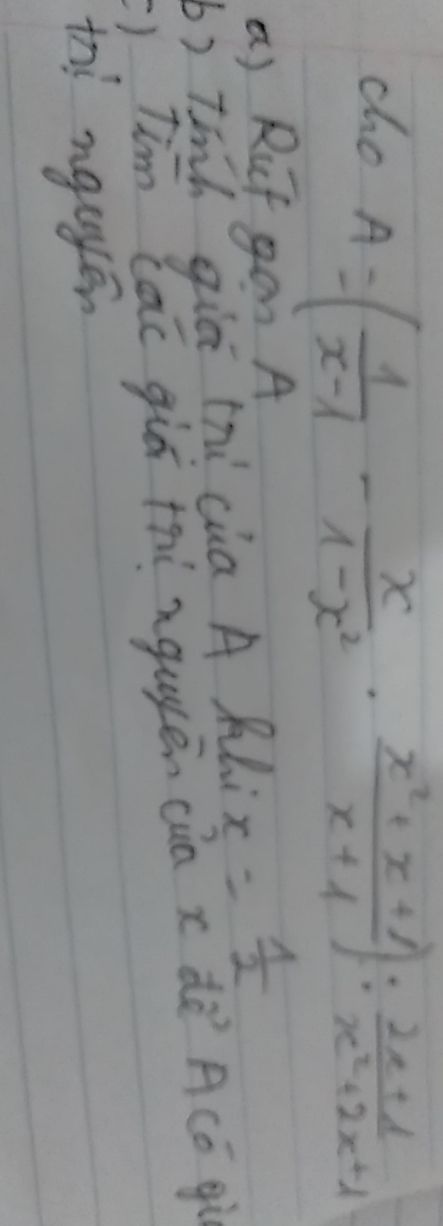 cho A = (1/(x-1) - x/(1-x²) · (x²+x+1)/(x+1)) : (2x+1)/(x²+2x+1)
a) Rút gọn A
b) Tính giá trị của A khi x = 1/2
c) Tìm các giá trị nguyên của x để A có giá
trị nguyên